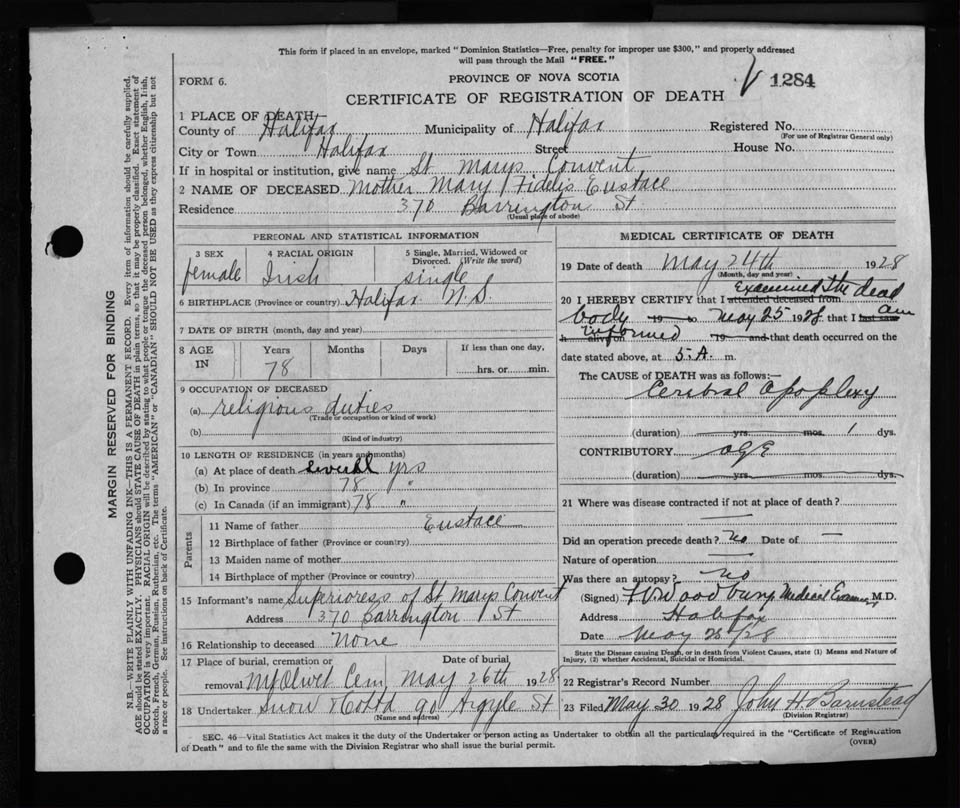 This form if placed in an envelope, marked "Dominion Statistics—Free, penalty for improper use $300," and properly addressed
will pass through the Mail "FREE."
FORM 6.
PROVINCE OF NOVA SCOTIA
1284
CERTIFICATE OF REGISTRATION OF DEATH
1 PLACE OF DEATH
County of Halifax Municipality of Halifax Registered No.
(For use of Registrar General only)
City or Town Halifax Street House No.
If in hospital or institution, give name St Marys Convent
2 NAME OF DECEASED Mother Mary Fidelis Eustace
Residence 370 Barrington St
(Usual place of abode)
PERSONAL AND STATISTICAL INFORMATION
3 SEX 4 RACIAL ORIGIN 5 Single, Married, Widowed or Divorced. (Write the word)
female Irish single
6 BIRTHPLACE (Province or country) Halifax N.S.
7 DATE OF BIRTH (month, day and year)
8 AGE IN Years Months Days If less than one day,
78 hrs. or min.
9 OCCUPATION OF DECEASED
(a) religious duties
(Trade or occupation or kind of work)
(b)
(Kind of industry)
10 LENGTH OF RESIDENCE (in years and months)
(a) At place of death several yrs
(b) In province 78 "
(c) In Canada (if an immigrant) 78 "
Parents
11 Name of father Eustace
12 Birthplace of father (Province or country)
13 Maiden name of mother
14 Birthplace of mother (Province or country)
15 Informant's name Superioress of St Marys Convent
Address 370 Barrington St
16 Relationship to deceased None
17 Place of burial, cremation or Date of burial
removal Mt Olivet Cem May 26th 1928
18 Undertaker Snow & Co Ltd 90 Argyle St
(Name and address)
MEDICAL CERTIFICATE OF DEATH
19 Date of death May 24th 1928
(Month, day and year)
Examined the dead
20 I HEREBY CERTIFY that I attended deceased from
body 19 to May 25 1928 that I last saw am
informed
h alive on 19 and that death occurred on the
date stated above, at 5 A. m.
The CAUSE of DEATH was as follows:—
Cerebral apoplexy
(duration) yrs. mos. 1 dys.
CONTRIBUTORY age
(duration) yrs. mos. dys.
21 Where was disease contracted if not at place of death?
—
Did an operation precede death? no Date of —
Nature of operation —
Was there an autopsy? no
(Signed) Medical Examiner M.D.
Address Halifax
Date May 25/28
State the Disease causing Death, or in death from Violent Causes, state (1) Means and Nature of
Injury, (2) whether Accidental, Suicidal or Homicidal.
22 Registrar's Record Number
23 Filed May 30 1928 John H Barnstead
(Division Registrar)
SEC. 46—Vital Statistics Act makes it the duty of the Undertaker or person acting as Undertaker to obtain all the particulars required in the "Certificate of Registration
of Death" and to file the same with the Division Registrar who shall issue the burial permit.
(OVER)
MARGIN RESERVED FOR BINDING
N.B.—WRITE PLAINLY WITH UNFADING INK—THIS IS A PERMANENT RECORD. Every item of information should be carefully supplied.
AGE should be stated EXACTLY. PHYSICIANS should STATE CAUSE OF DEATH in plain terms, so that it may be properly classified. Exact statement of
OCCUPATION is very important. RACIAL ORIGIN will be described by stating to what people or tongue the deceased person belonged, whether English, Irish,
Scotch, French, German, Russian, Ruthenian, etc. The terms "AMERICAN" or "CANADIAN" SHOULD NOT BE USED as they express citizenship but not
a race or people. See instructions on back of Certificate.